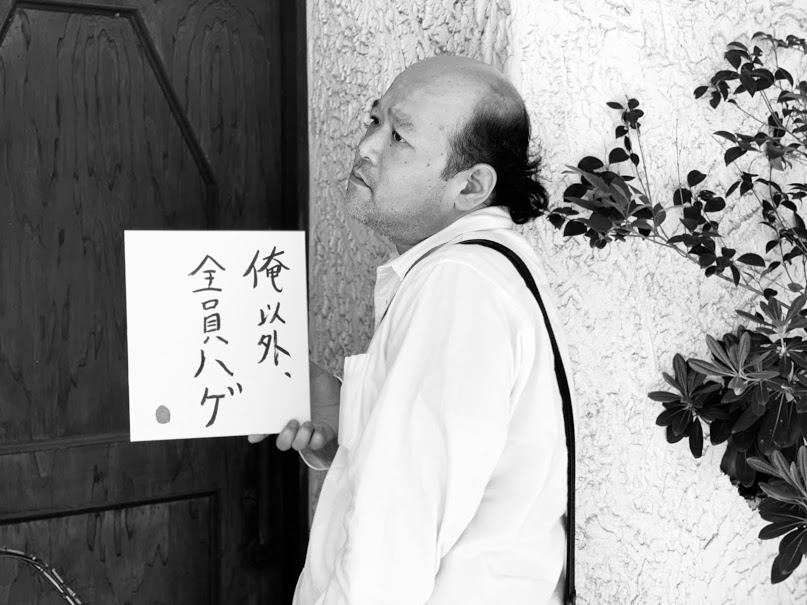 俺以外、
全員ハゲ